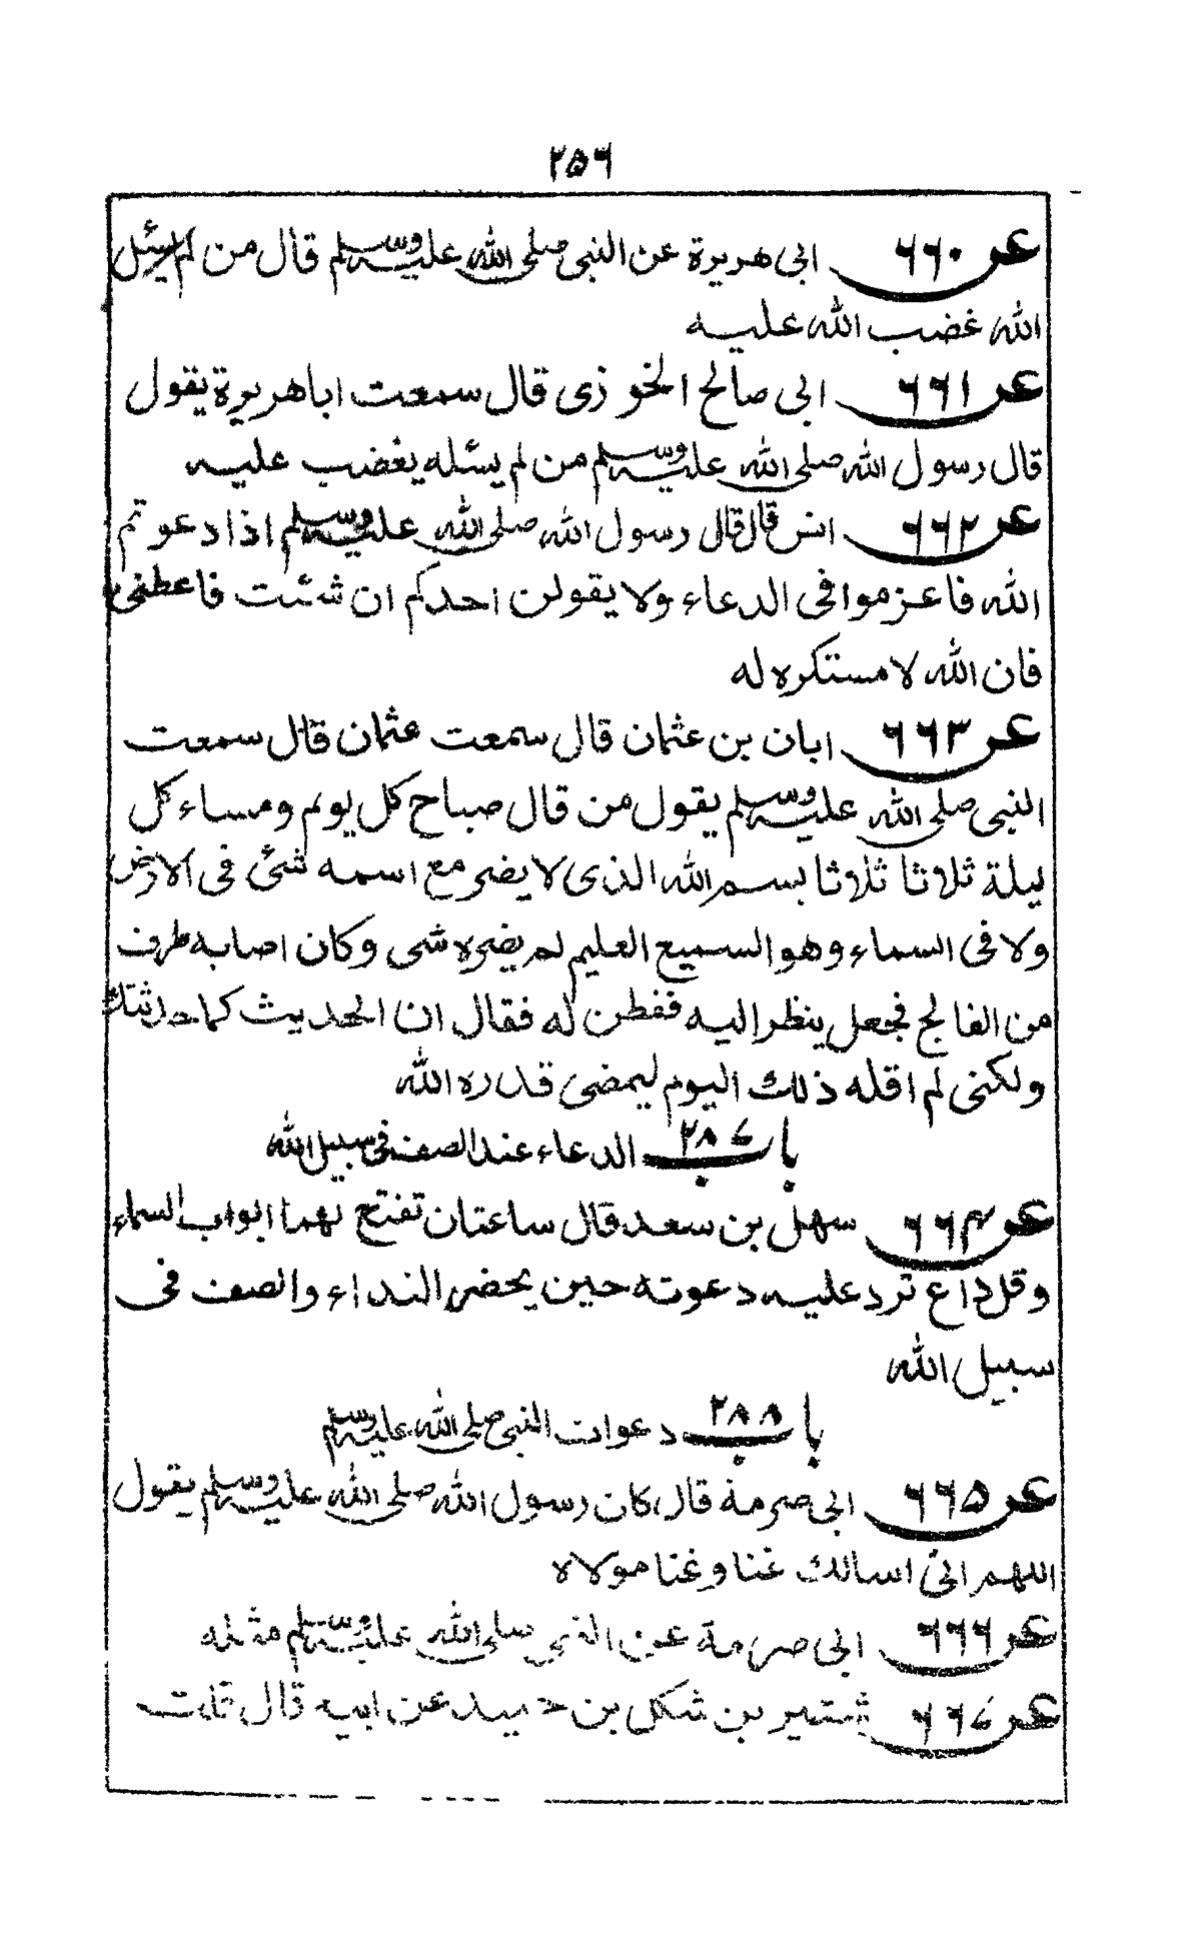 ٢٥٦
عن ٦٦٠ ابى هريرة عن النبى صلى الله عليه وسلم قال من لم يسئل
الله غضب الله عليه
عن ٦٦١ ابى صالح الخوزى قال سمعت اباهريرة يقول
قال رسول الله صلى الله عليه وسلم من لم يسئله يغضب عليه
عن ٦٦٢ انس قال قال رسول الله صلى الله عليه وسلم اذا دعوتم
الله فاعزموا فى الدعاء ولا يقولن احدكم ان شئت فاعطنى
فان الله لا مستكره له
عن ٦٦٣ ابان بن عثمان قال سمعت عثمان قال سمعت
النبى صلى الله عليه وسلم يقول من قال صباح كل يوم ومساء كل
ليلة ثلاثا ثلاثا بسم الله الذى لا يضر مع اسمه شئ فى الارض
ولا فى السماء وهو السميع العليم لم يضره شى وكان اصابه طرف
من الفالج فجعل ينظر اليه ففطن له فقال ان الحديث كما حدثتك
ولكنى لم اقله ذلك اليوم ليمضى قدره الله
باب ٢٨٧ الدعاء عند الصف فى سبيل الله
عن ٦٦٤ سهل بن سعد قال ساعتان تفتح لهما ابواب السماء
وقل داع ترد عليه دعوته حين يحضر النداء والصف فى
سبيل الله
باب ٢٨٨ دعوات النبى صلى الله عليه وسلم
عن ٦٦٥ ابى صرمة قال كان رسول الله صلى الله عليه وسلم يقول
اللهم انى اسالك غنا وغنا مولاه
عن ٦٦٦ ابى صرمة عن النبى صلى الله عليه وسلم مثله
عن ٦٦٧ شتير بن شكل بن حميد عن ابيه قال قلت